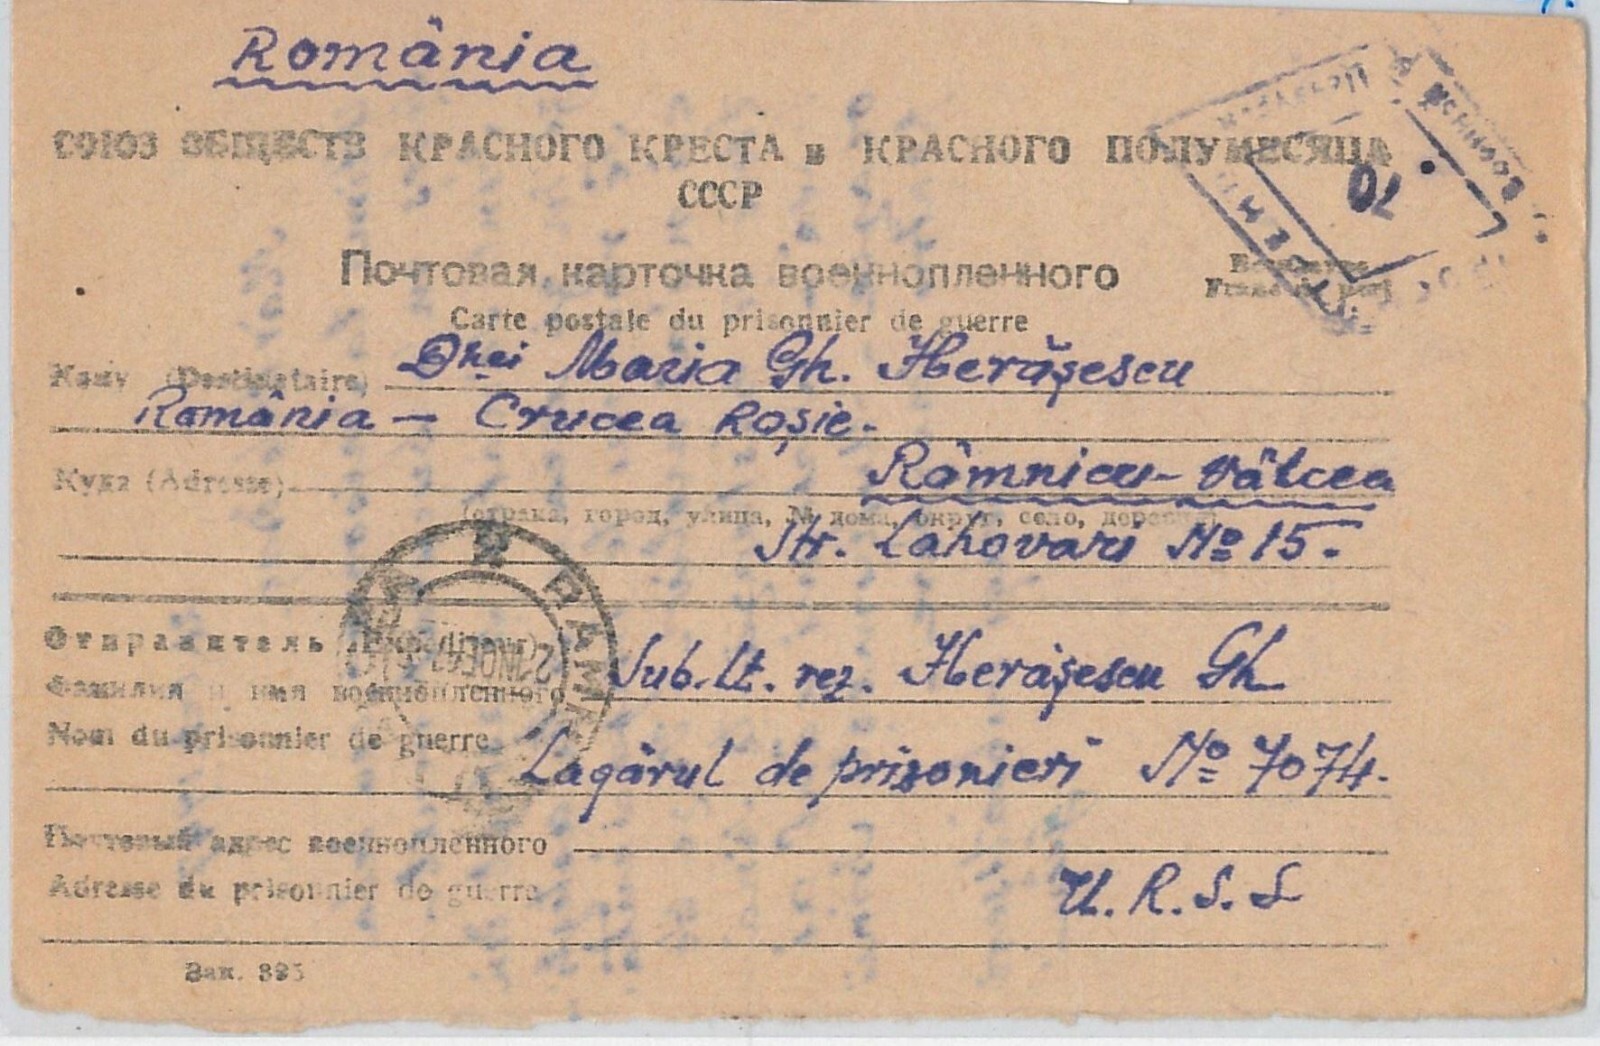 România
СОЮЗ ОБЩЕСТВ КРАСНОГО КРЕСТА и КРАСНОГО ПОЛУМЕСЯЦА
СССР
70
Почтовая карточка военнопленного
Carte postale du prisonnier de guerre
Кому (Destinataire) Dnei Maria Gh. Herăşescu
România – Crucea Roşie.
Куда (Adresse) Râmnicu-Vâlcea
(страна, город, улица, № дома, округ, село, деревня)
Str. Lahovari No 15.
Отправитель (Expéditeur)
Фамилия и имя военнопленного Sub.lt. rez. Herăşescu Gh
Nom du prisonnier de guerre Lagărul de prizonieri No 7074.
Почтовый адрес военнопленного
Adresse du prisonnier de guerre U.R.S.S
Зак. 395